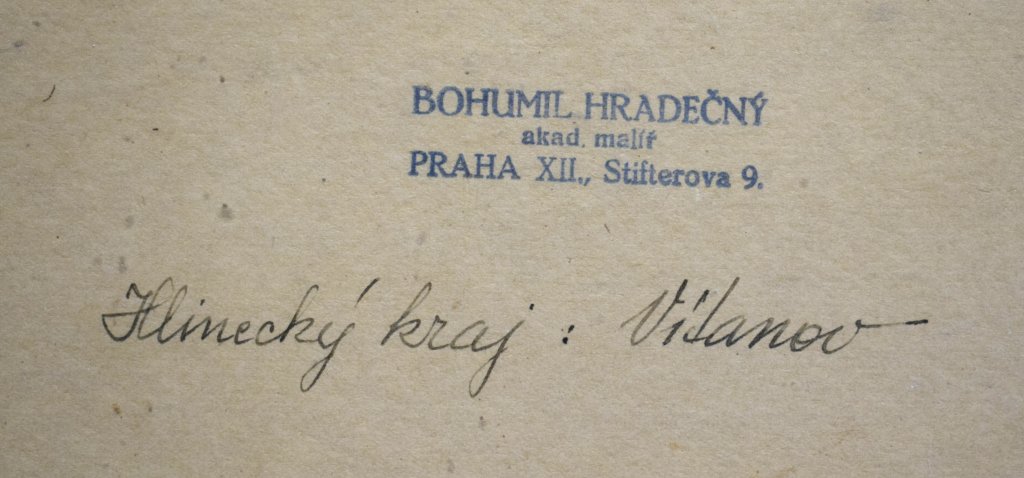 BOHUMIL HRADEČNÝ
akad. malíř
PRAHA XII., Stifterova 9.
Hlinecký kraj : Vítanov